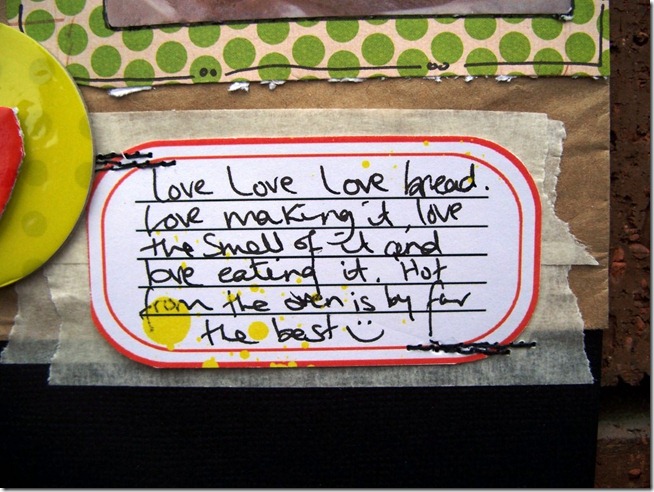 Love Love Love bread.
Love making it, love
the smell of it and
love eating it. Hot
from the oven is by far
the best